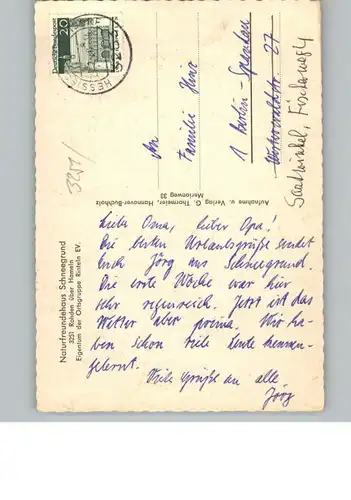 Naturfreundehaus Schneegrund
3251 Rohden über Hameln
Eigentum der Ortsgruppe Rinteln EV.
Liebe Oma, lieber Opa!
Die besten Urlaubsgrüße sendet
Euch Jörg aus Schneegrund.
Die erste Woche war hier
sehr regenreich. Jetzt ist das
Wetter aber prima. Wir ha-
ben schon viele Leute kennen-
gelernt.
Viele Grüße an alle
Jörg
Aufnahme u. Verlag G. Thormeier, Hannover-Buchholz
Marienweg 33
Deutsche Bundespost
20
3251
An
Familie Hinz
1 Berlin-Spandau
27
Saatwinkel, Fischerweg 4